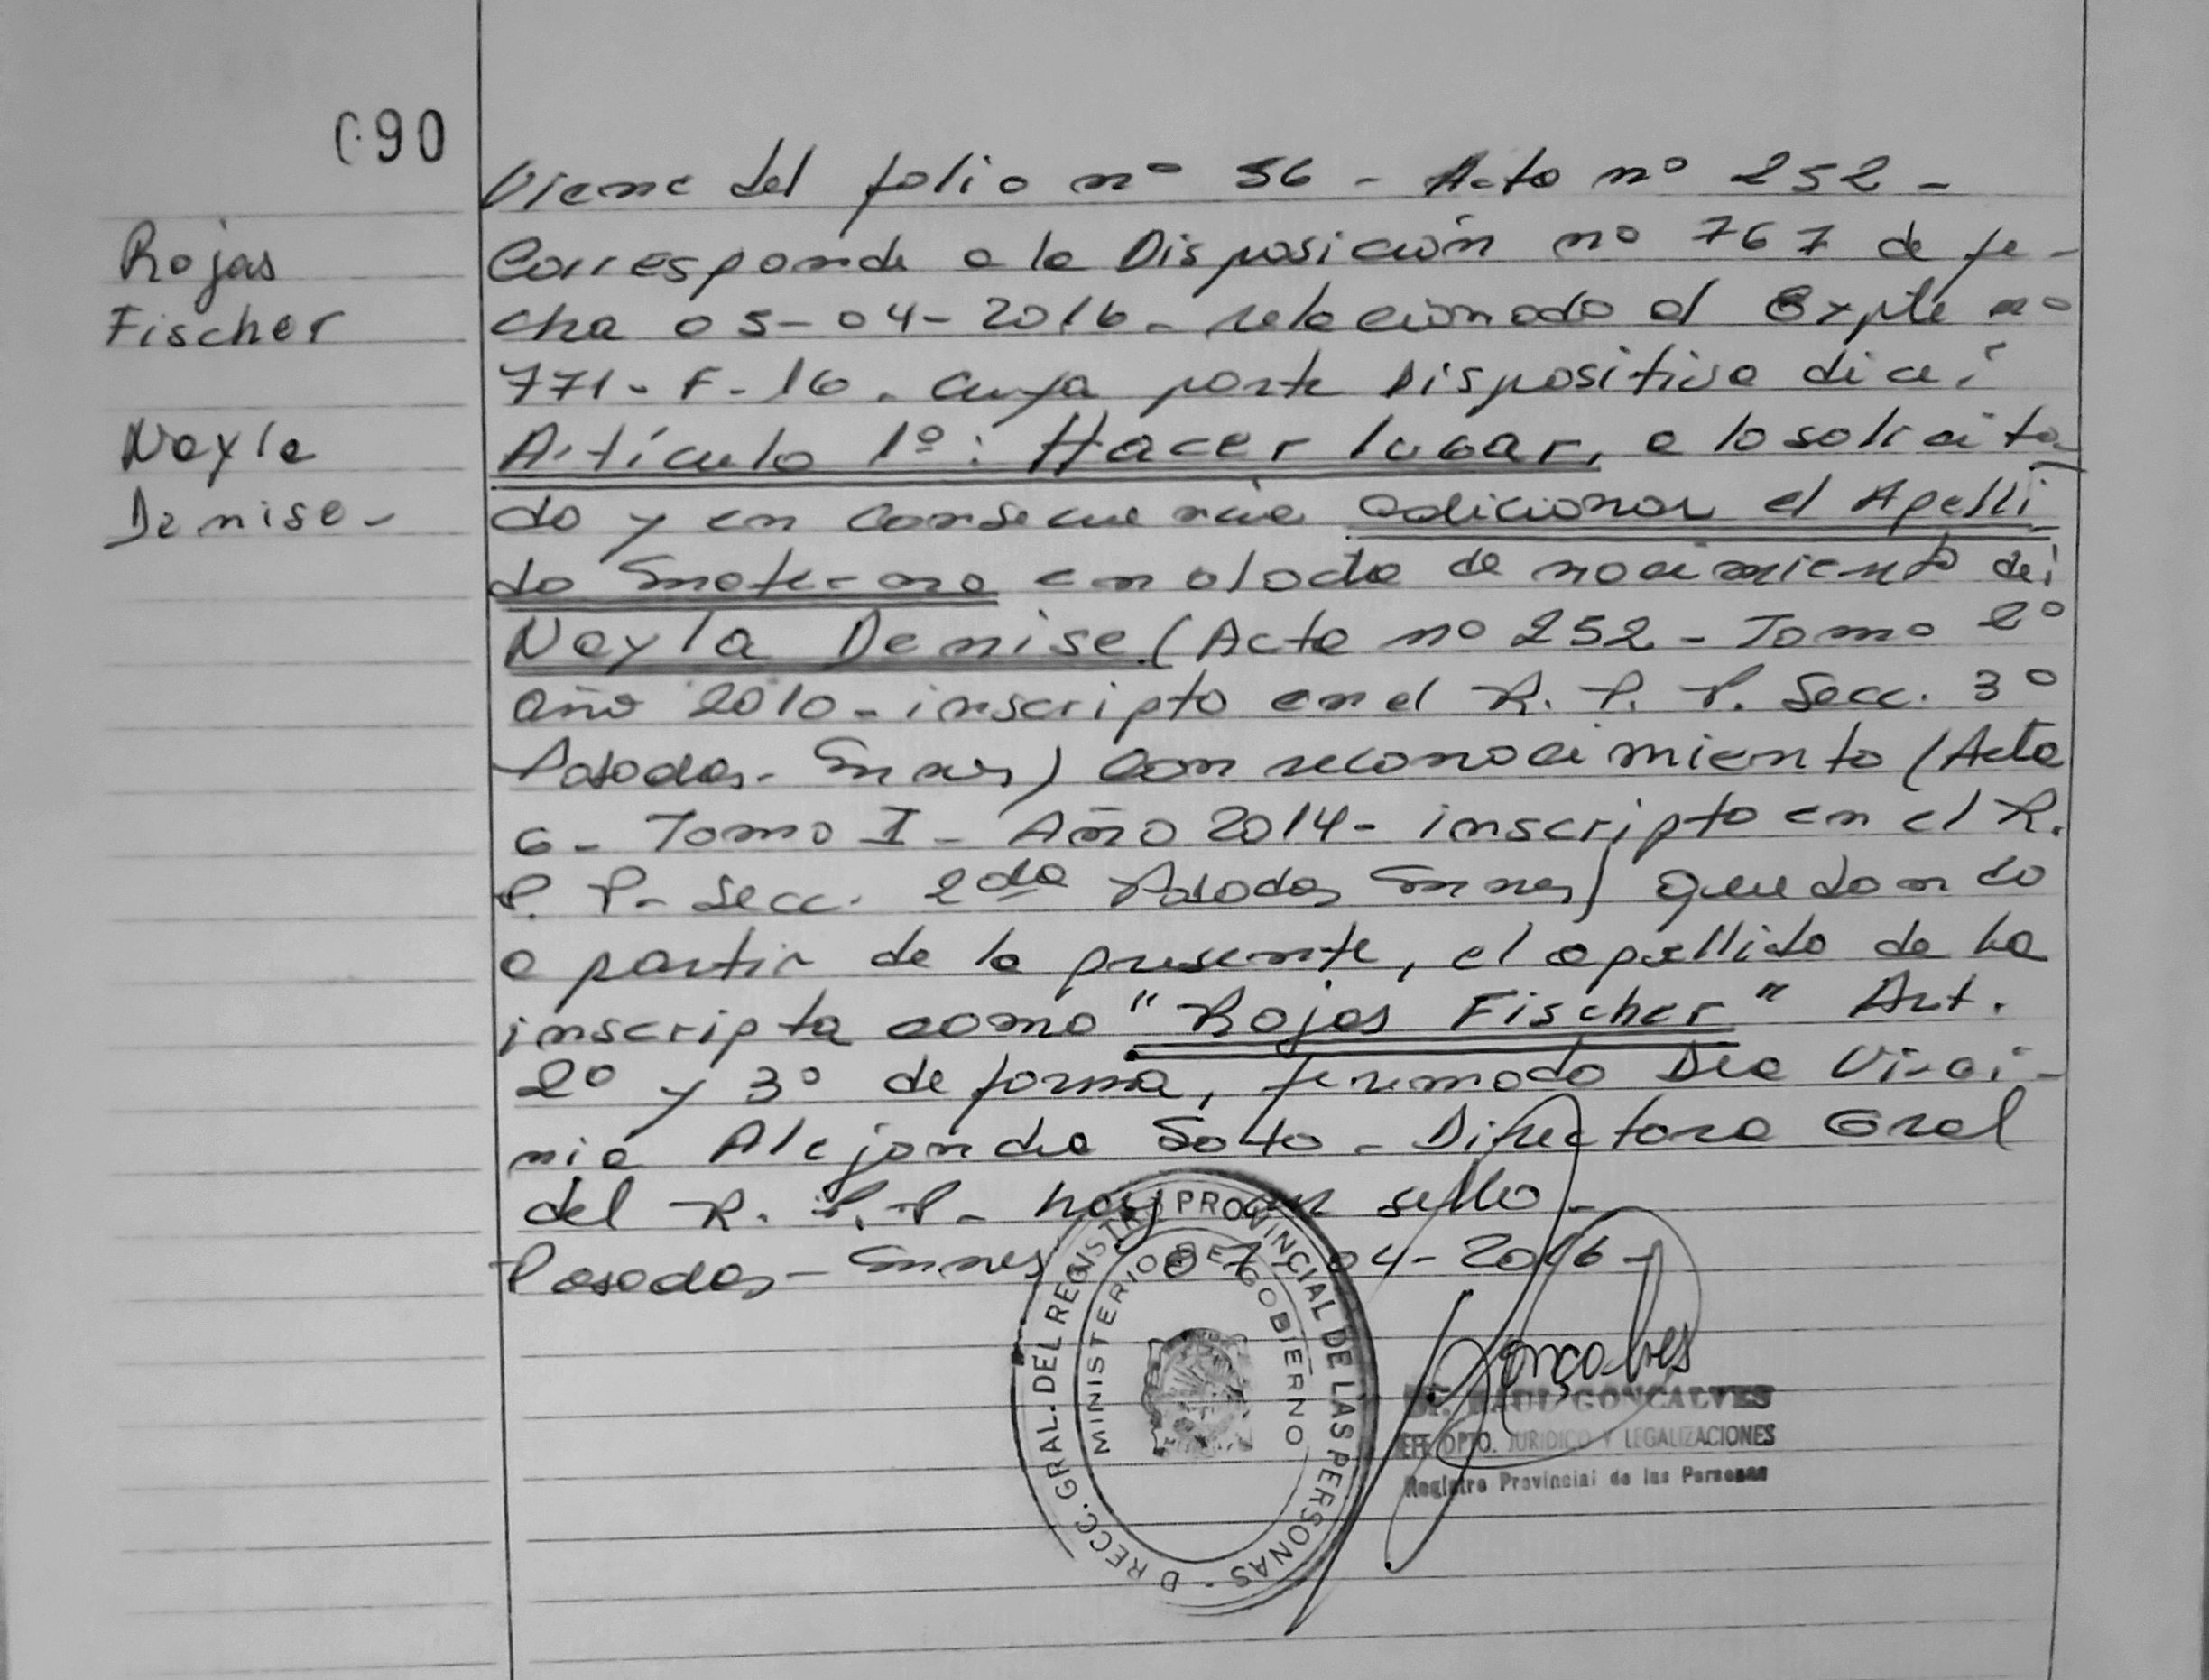 090
Rojas
Fischer
Nayla
Denise-
Viene del folio nº 56 - Acta nº 252 -
Corresponde a la Disposición nº 767 de fe-
cha 05-04-2016- relacionado al Expte nº
771-F-16. cuya parte Dispositiva dice:
Artículo 1º: Hacer lugar, a lo solicita
do y en consecuencia adicionar el Apelli
do materno en el acta de nacimiento de:
Nayla Denise (Acta nº 252 - Tomo 2º
año 2010 - inscripto en el R. P. P. Secc. 3º
Posadas - Mnes) con reconocimiento (Acta
6 - Tomo I - Año 2014 - inscripto en el R.
P. P- Secc. 2da Posadas Mnes) quedando
a partir de la presente, el apellido de la
inscripta como "Rojas Fischer" Art.
2º y 3º de forma, firmado Dra Virgi-
nia Alejandra Soto - Directora Gral
del R. P. P- hay un sello -
Posadas - Mnes 07-04-2016-
DIRECC. GRAL. DEL REGISTRO PROVINCIAL DE LAS PERSONAS -
MINISTERIO DE GOBIERNO
Gonçalves
Dr. RAUL GONCALVES
JEFE DPTO. JURIDICO Y LEGALIZACIONES
Registro Provincial de las Personas